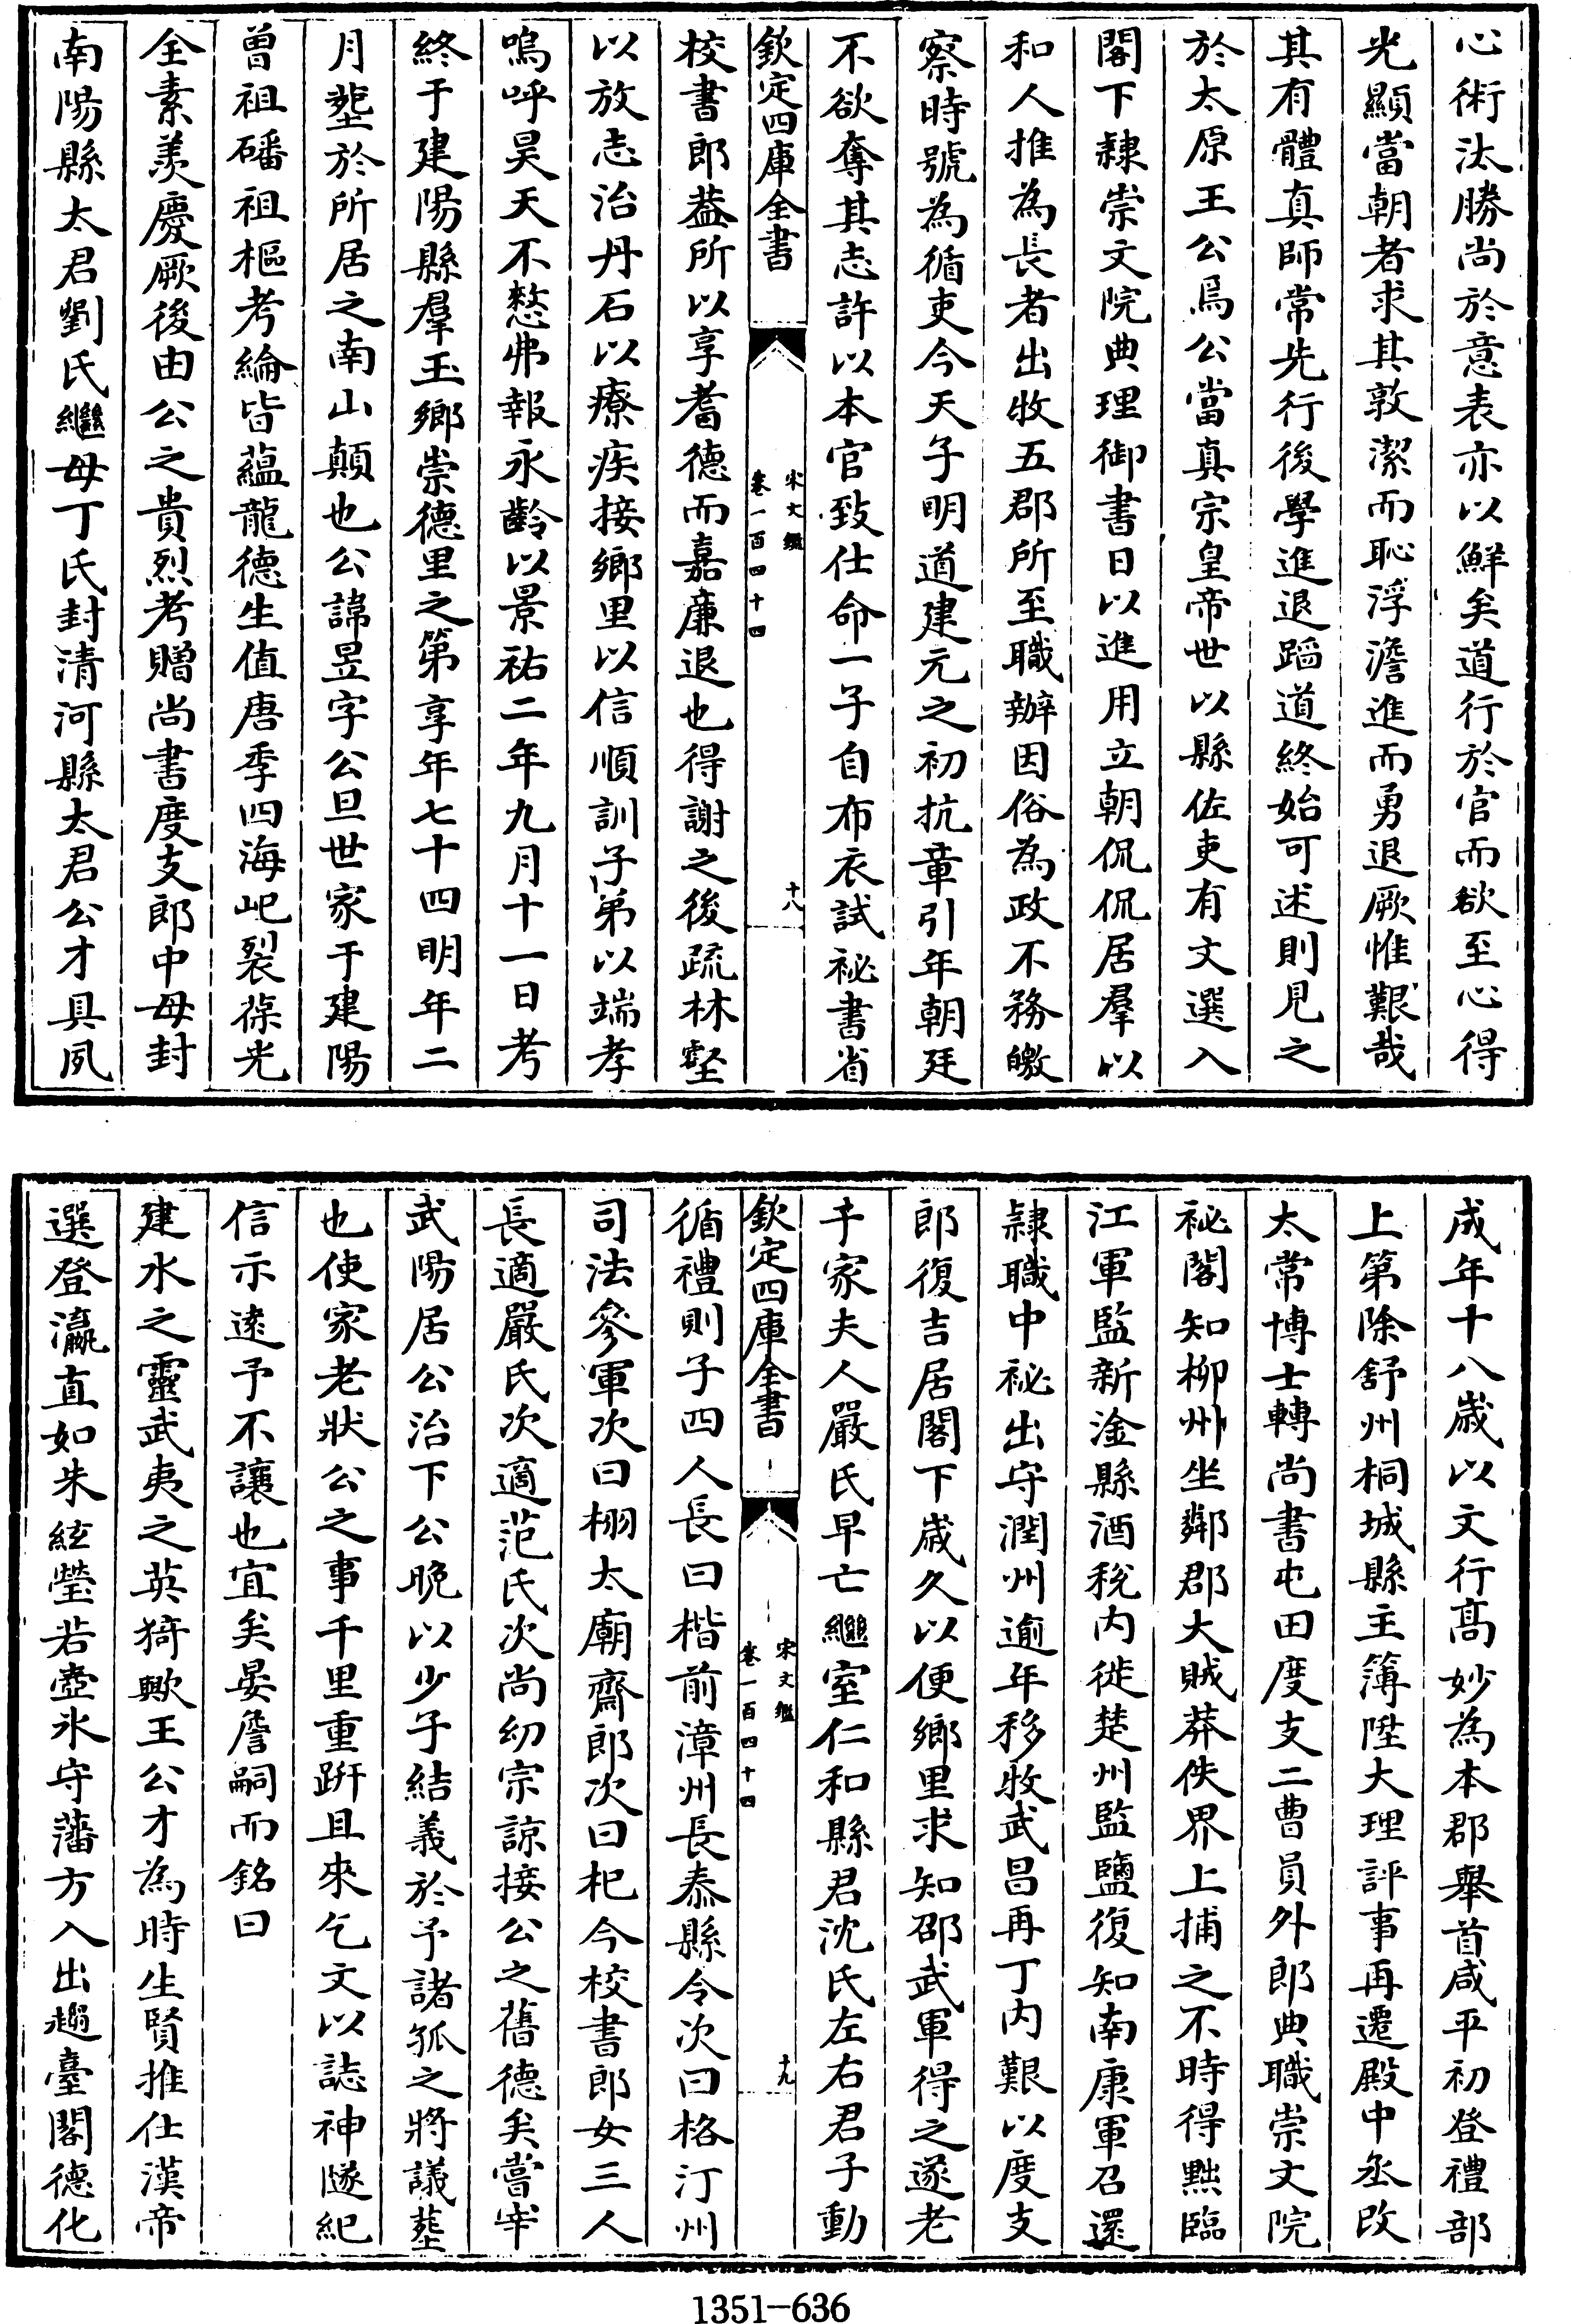 心術汰勝尚於意表亦以鮮矣道行於官而欲至心得
光顯當朝者求其敦潔而恥浮澹進而勇退厥惟艱哉
其有體真師常先行後學進退蹈道終始可述則見之
於太原王公焉公當真宗皇帝世以縣佐吏有文選入
閣下隸崇文院典理御書日以進用立朝侃侃居羣以
和人推為長者出牧五郡所至職辦因俗為政不務皦
察時號為循吏今天子明道建元之初抗章引年朝廷
不欲奪其志許以本官致仕命一子自布衣試祕書省
欽定四庫全書
宋文鑑
卷一百四十四
十八
校書郎葢所以享耆德而嘉廉退也得謝之後疏林壑
以放志治丹石以療疾接鄉里以信順訓子弟以端孝
嗚呼昊天不憗弗報永齡以景祐二年九月十一日考
終于建陽縣羣玉鄉崇德里之第享年七十四明年二
月塟於所居之南山顛也公諱昱字公旦世家于建陽
曾祖磻祖樞考綸皆藴龍德生值唐季四海屺裂葆光
全素羙慶厥後由公之貴烈考贈尚書度支郎中母封
南陽縣太君劉氏繼母丁氏封清河縣太君公才具夙
成年十八歲以文行髙妙為本郡舉首咸平初登禮部
上第除舒州桐城縣主簿陞大理評事再遷殿中丞改
太常博士轉尚書屯田度支二曹員外郎典職崇文院
祕閣知柳州坐鄰郡大賊莽佚界上捕之不時得黜臨
江軍監新淦縣酒稅内徙楚州監鹽復知南康軍召還
隷職中祕出守潤州逾年移牧武昌再丁内艱以度支
郎復吉居閣下嵗久以便鄉里求知邵武軍得之遂老
于家夫人嚴氏早亡繼室仁和縣君沈氏左右君子動
欽定四庫全書
宋文鑑
卷一百四十四
十九
循禮則子四人長曰楷前漳州長泰縣令次曰格汀州
司法參軍次曰栩太廟齋郎次曰杞今校書郎女三人
長適嚴氏次適范氏次尚幼宗諒接公之舊德矣嘗宰
武陽居公治下公晚以少子結義於予諸孤之將議塟
也使家老狀公之事千里重趼且來乞文以誌神隧紀
信示逺予不讓也宜矣晏詹嗣而銘曰
建水之靈武夷之英猗歟王公才為時生賢推仕漢帝
選登瀛直如朱絃瑩若壺氷守藩方入出趨臺閣德化
1351-636